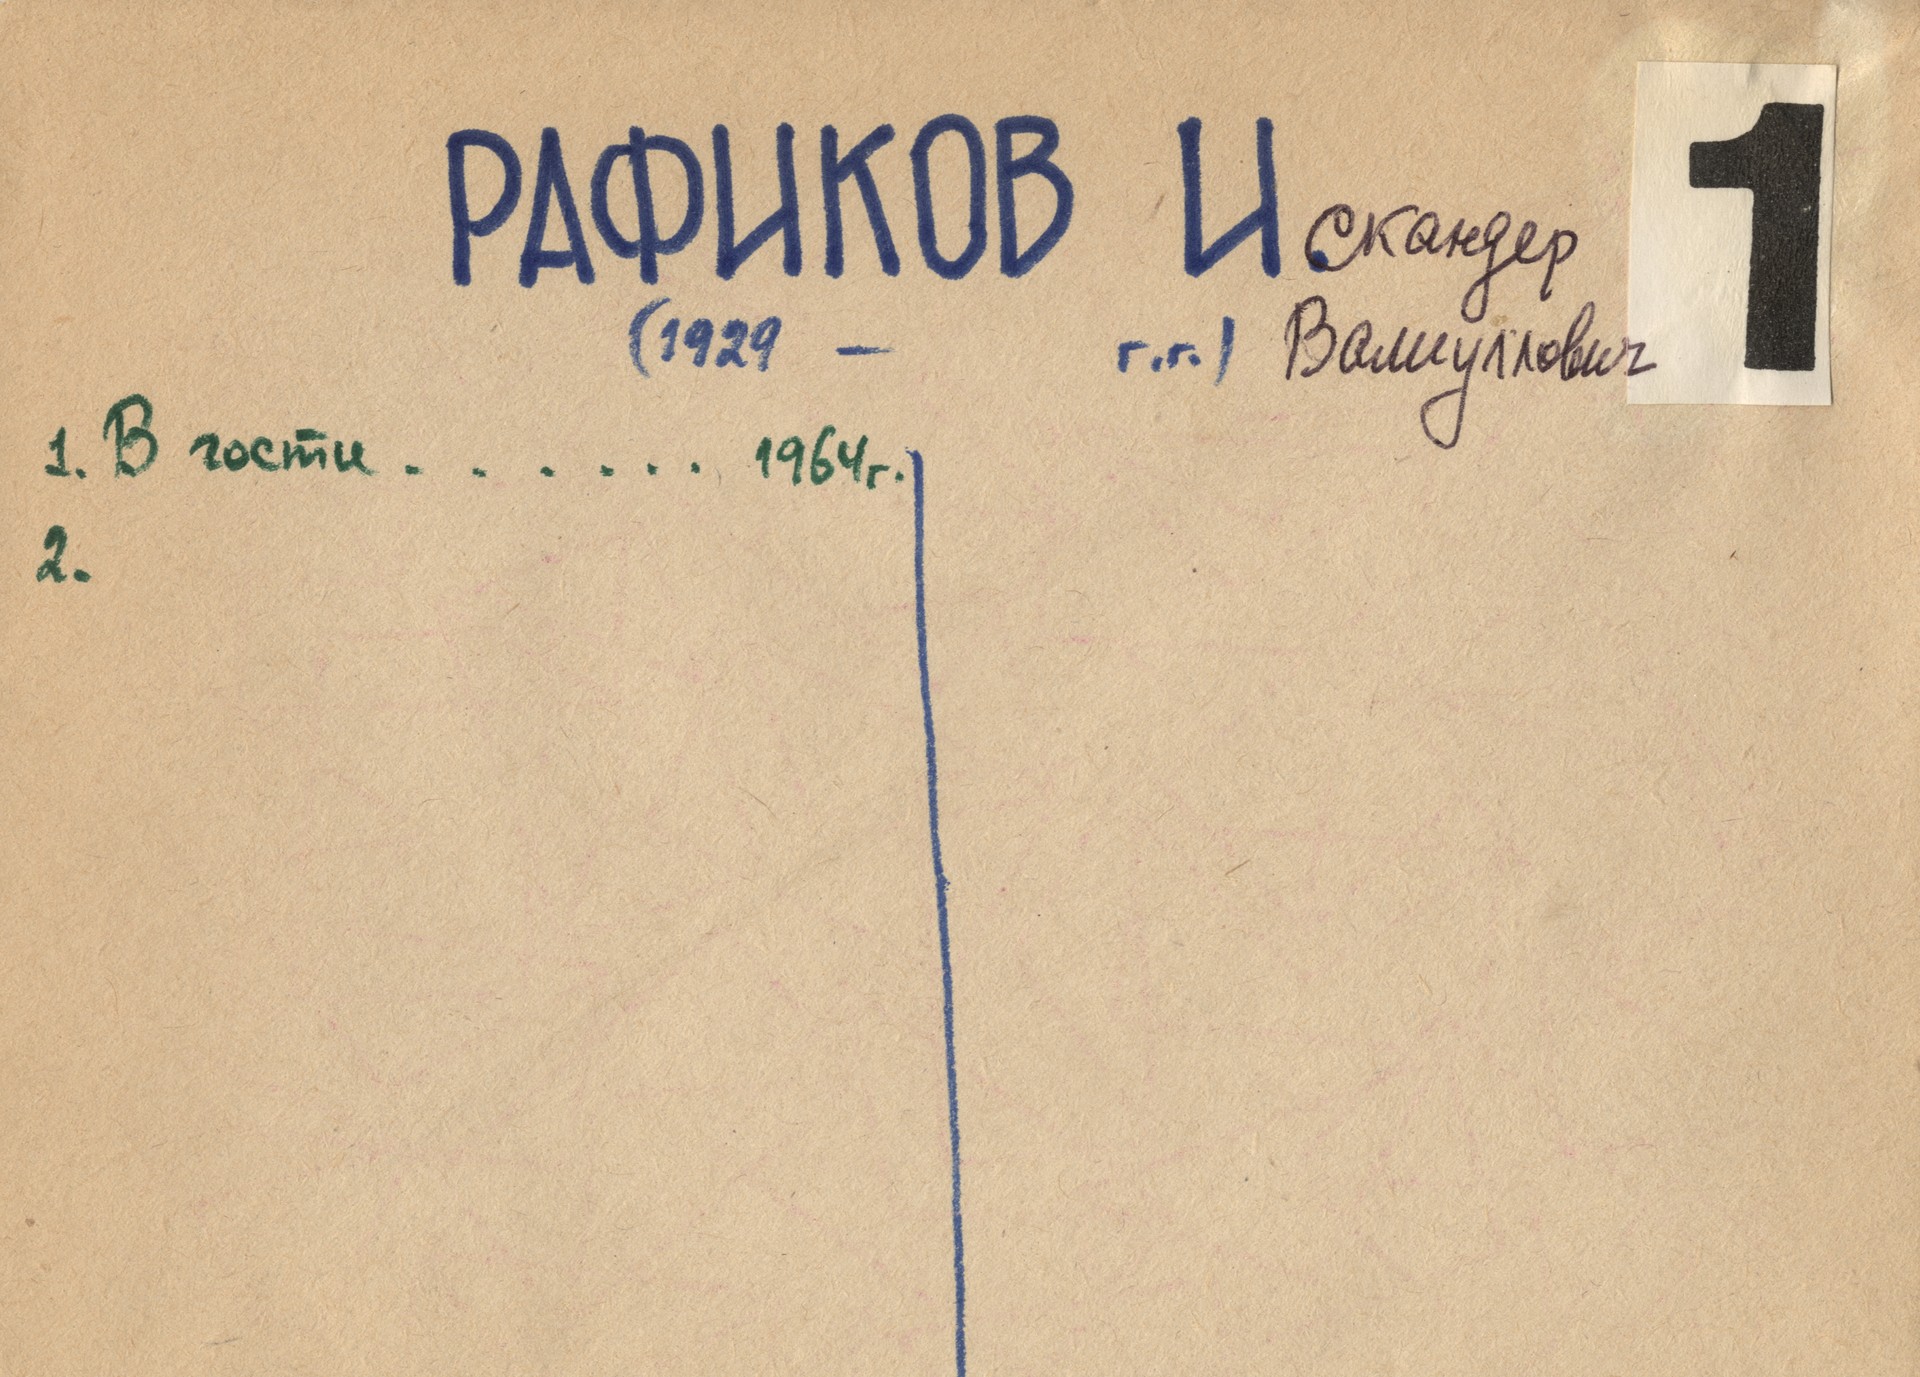 РАФИКОВ Искандер
(1929 — г.г.) Валиуллович
1
1. В гости . . . . . . 1964г.
2.